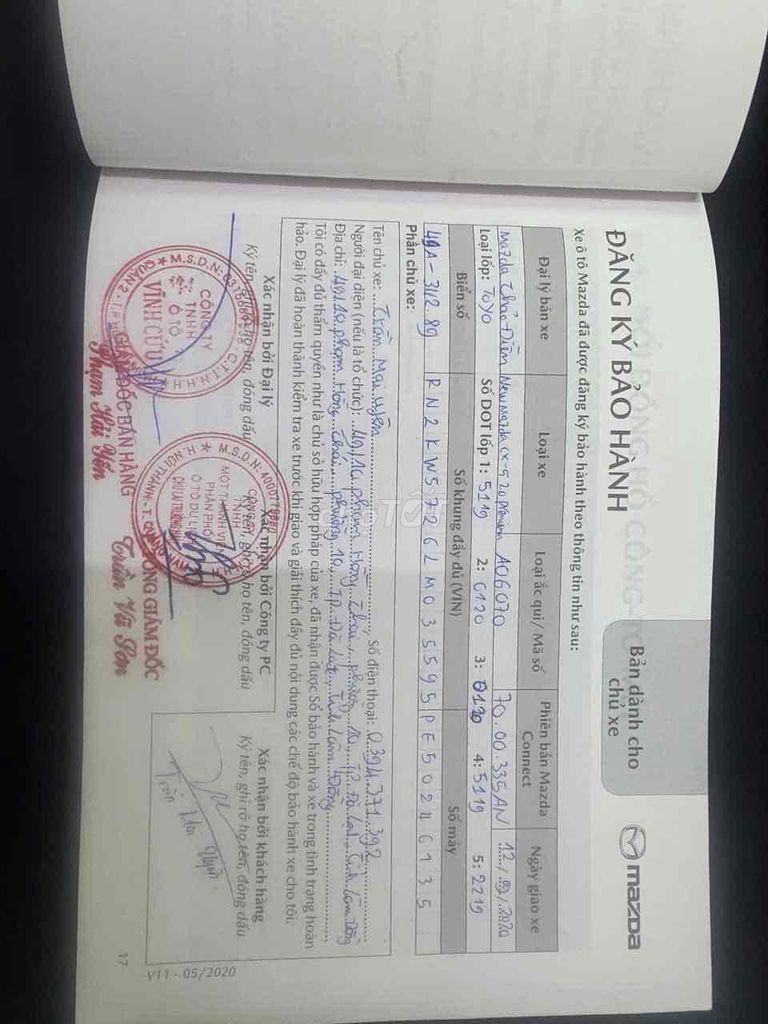 Bản dành cho
chủ xe
mazda
ĐĂNG KÝ BẢO HÀNH
Xe ô tô Mazda đã được đăng ký bảo hành theo thông tin như sau:
Đại lý bán xe Loại xe Loại ắc qui/ Mã số Phiên bản Mazda Connect Ngày giao xe
Mazda Thảo Điền New Mazda CX-5 2.0 Premium A06070 70.00.335AN 12/09/2020
Loại lốp: TOYO Số DOT lốp 1: 5119 2: 0120 3: 0120 4: 5119 5: 2219
Biển số Số khung đầy đủ (VIN) Số máy
49A-312.89 RN2KW5726LM035595 PE50246135
Phần chủ xe:
Tên chủ xe: Trần Mai Uyên Số điện thoại: 0.394.371.392
Người đại diện (nếu là tổ chức): 49/10 phạm Hồng Thái, phường 10, TP. Đà Lạt, Tỉnh Lâm Đồng
Địa chỉ: 49/10 phạm Hồng Thái, phường 10, TP. Đà Lạt, Tỉnh Lâm Đồng
Tôi có đầy đủ thẩm quyền như là chủ sở hữu hợp pháp của xe, đã nhận được Sổ bảo hành và xe trong tình trạng hoàn
hảo. Đại lý đã hoàn thành kiểm tra xe trước khi giao và giải thích đầy đủ nội dung các chế độ bảo hành xe cho tôi.
Xác nhận bởi Đại lý
Ký tên, ghi rõ họ tên, đóng dấu
CÔNG TY
TNHH
Ô TÔ
VĨNH CỬU
GIÁM ĐỐC BÁN HÀNG
Phạm Hải Yến
Xác nhận bởi Công ty PC
Ký tên, ghi rõ họ tên, đóng dấu
CÔNG TY
TNHH
MỘT THÀNH VIÊN
PHÂN PHỐI
Ô TÔ DU LỊCH
CHU LAI TRƯỜNG HẢI
TỔNG GIÁM ĐỐC
Xác nhận bởi khách hàng
Ký tên, ghi rõ họ tên, đóng dấu
Trần Mai Uyên
17
V11 - 05/2020